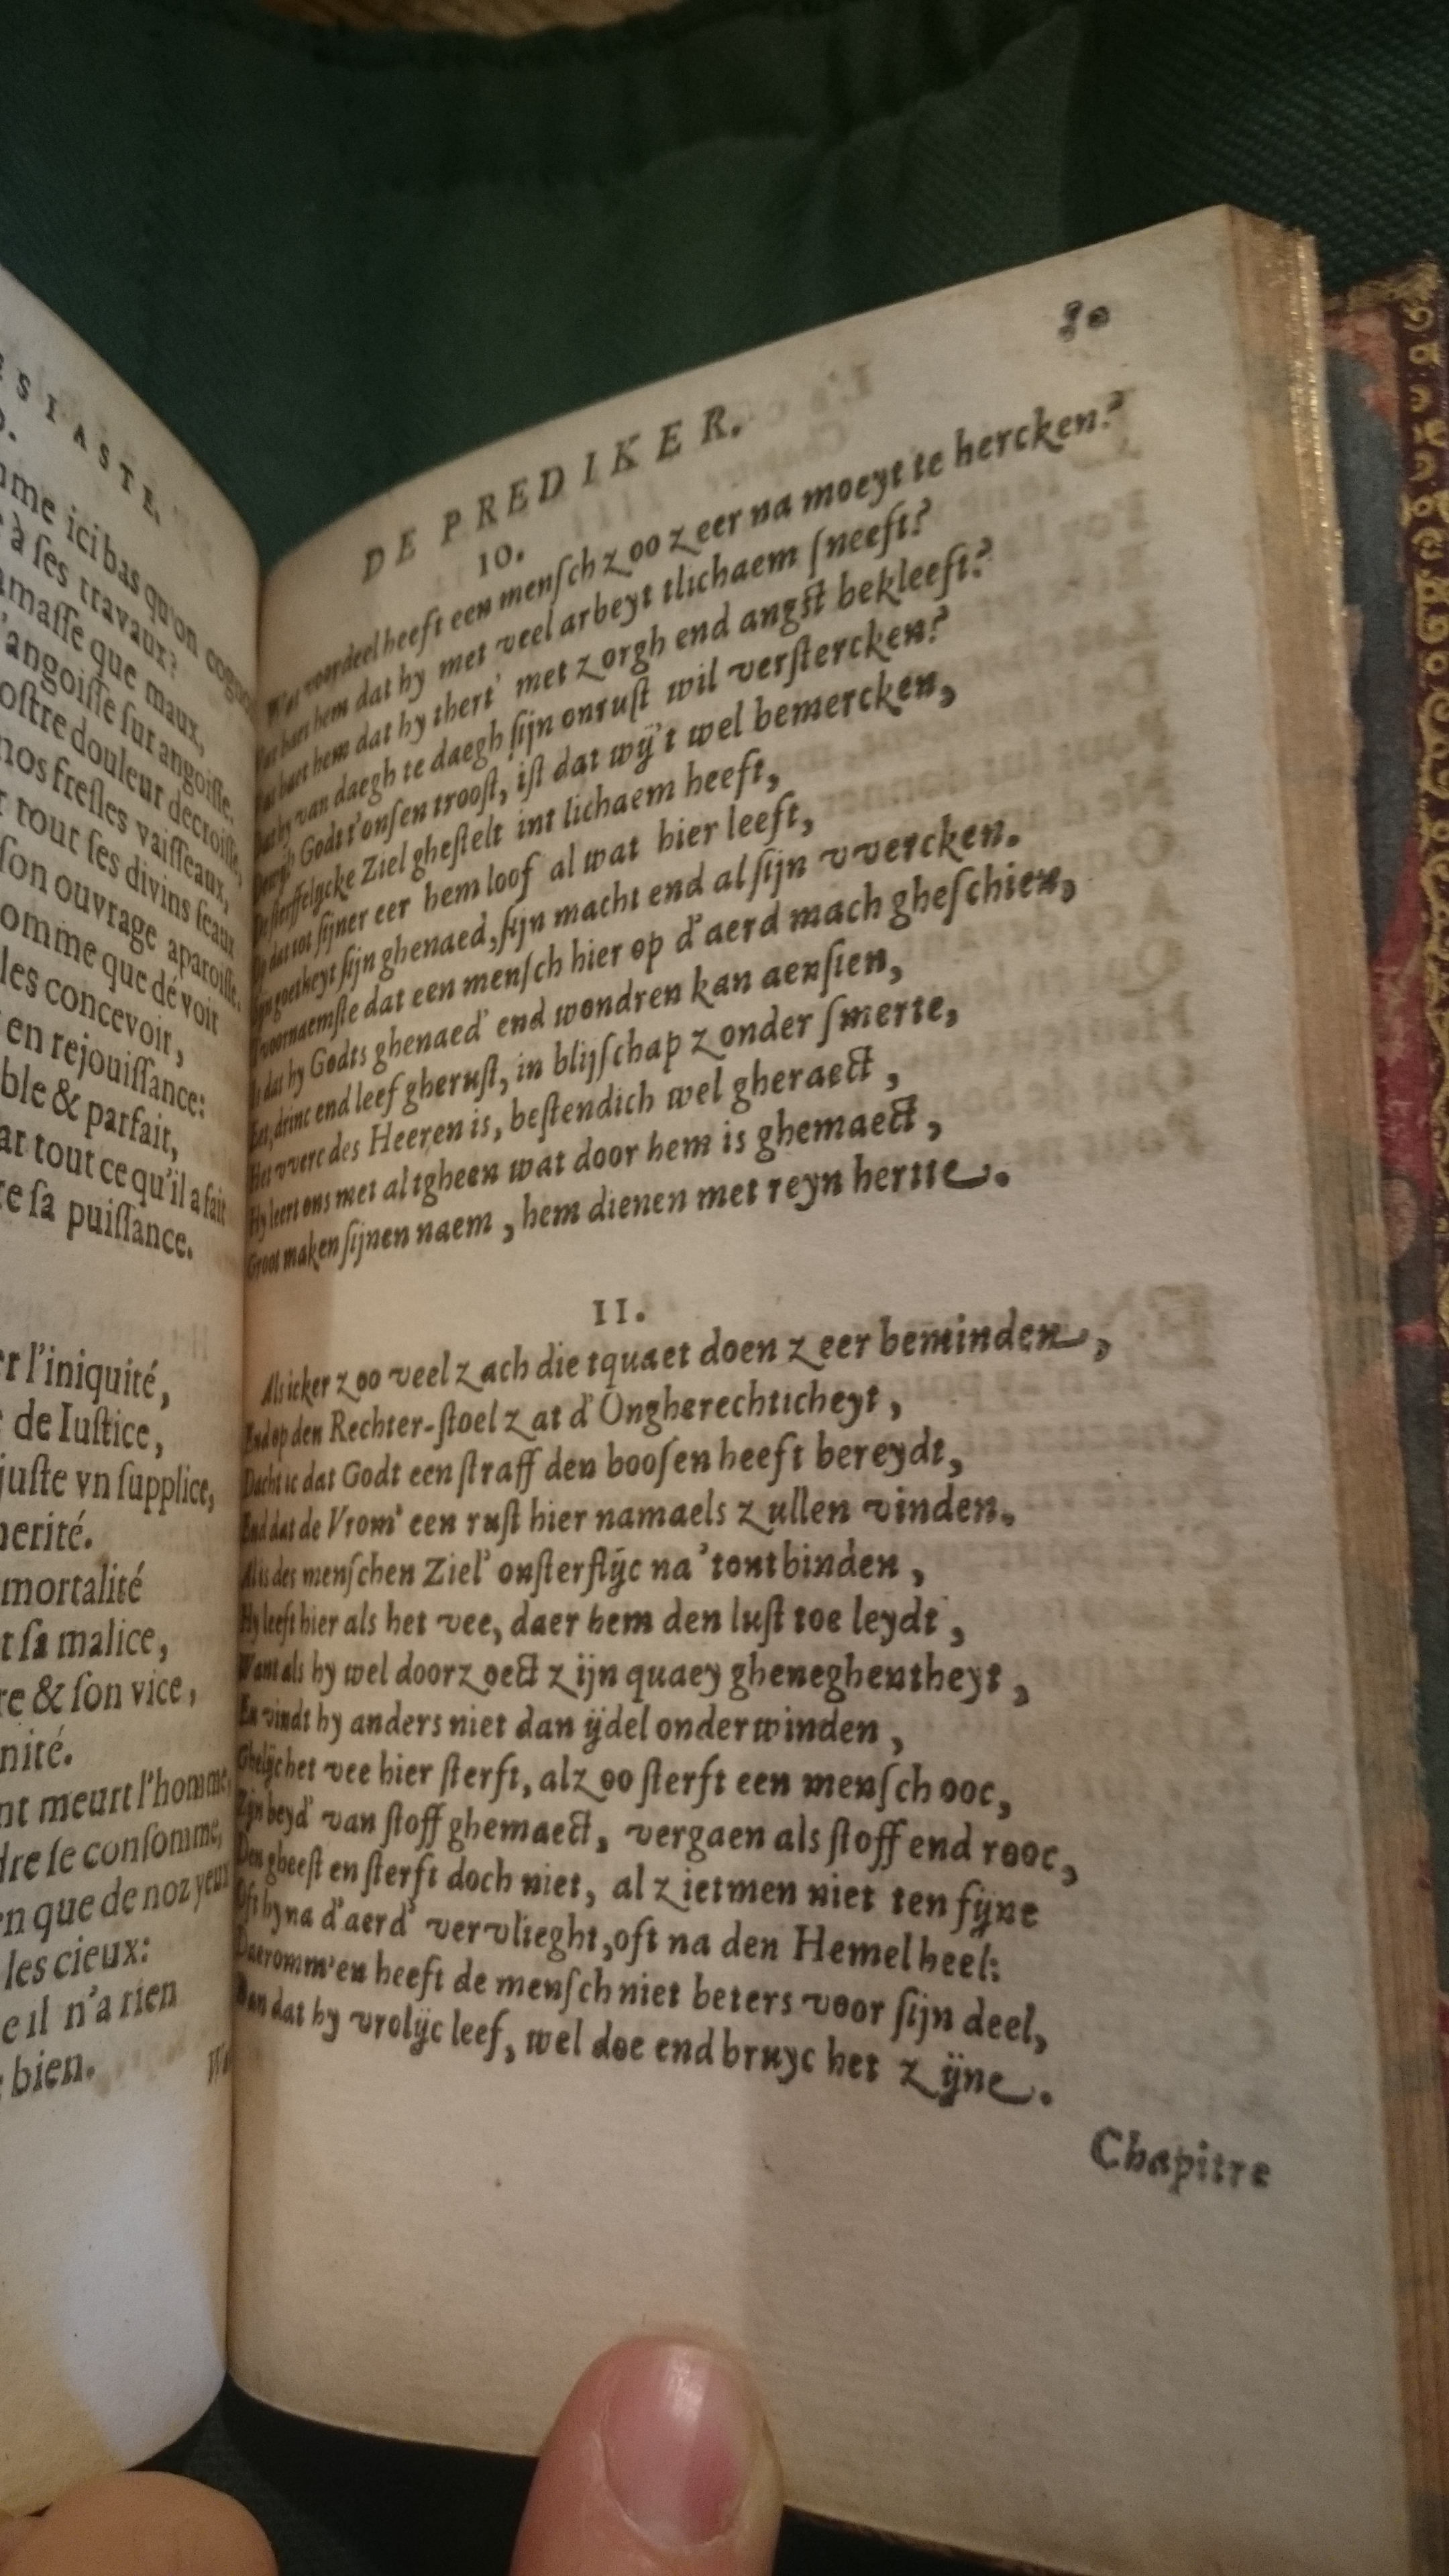 ESIASTE.
me ici bas qu'on
à ſes travaux?
maſſe que maux,
angoiſſe ſur angoiſſe.
oſtre douleur decroiſſe,
nos freſles vaiſſeaux,
r tout ſes divins ſeaux
ſon ouvrage aparoiſſe.
omme que de voit
les concevoir,
en rejouiſſance:
ble & parfait,
ar tout ce qu'il a fait
re ſa puiſſance.
r l'iniquité,
de Iuſtice,
juſte vn ſupplice,
erité.
mortalité
t ſa malice,
re & ſon vice,
nité.
nt meurt l'homme,
dre ſe conſomme,
n que de noz yeux
les cieux:
e il n'a rien
bien.
80
DE PREDIKER.
10.
Wat voordeel heeft een menſch zoo zeer na moeyt te hercken?
Wat baet hem dat hy met veel arbeyt tlichaem ſneeft?
Wat baet hem dat hy thert' met zorgh end angſt bekleeft?
Dat hy van daegh te daegh ſijn onruſt wil verſtercken?
Godt t'onſen trooſt, iſt dat wy't wel bemercken,
De ſterffelycke Ziel gheſtelt int lichaem heeft,
Op dat tot ſijner eer hem loof al wat hier leeft,
Sijn goetheyt ſijn ghenaed, ſijn macht end al ſijn vvercken.
T'voornaemſte dat een menſch hier op d'aerd mach gheſchien,
Is dat hy Godts ghenaed' end wondren kan aenſien,
Eet, drinc end leef gheruſt, in blijſchap zonder ſmerte,
Het vverc des Heeren is, beſtendich wel gheraect,
Hy leert ons met al tgheen wat door hem is ghemaect,
Groot maken ſijnen naem, hem dienen met reyn hertte.
11.
Als icker zoo veel zach die tquaet doen zeer beminden,
End op den Rechter-ſtoel zat d'Ongherechticheyt,
Dacht ic dat Godt een ſtraff den booſen heeft bereydt,
End dat de Vrom' een ruſt hier namaels zullen vinden.
Al is des menſchen Ziel' onſterflijc na 'tontbinden,
Hy leeft hier als het vee, daer hem den luſt toe leydt,
Want als hy wel doorzoect zijn quaey gheneghentheyt,
En vindt hy anders niet dan ijdel onderwinden,
Ghelijc het vee hier ſterft, alzoo ſterft een menſch ooc,
Zijn beyd' van ſtoff ghemaect, vergaen als ſtoff end rooc,
Den gheeſt en ſterft doch niet, al zietmen niet ten fijne
Oft hy na d'aerd' vervlieght, oft na den Hemel heel:
Daeromm'en heeft de menſch niet beters voor ſijn deel,
Dan dat hy vrolijc leef, wel doe end bruyc het zijne.
Chapitre